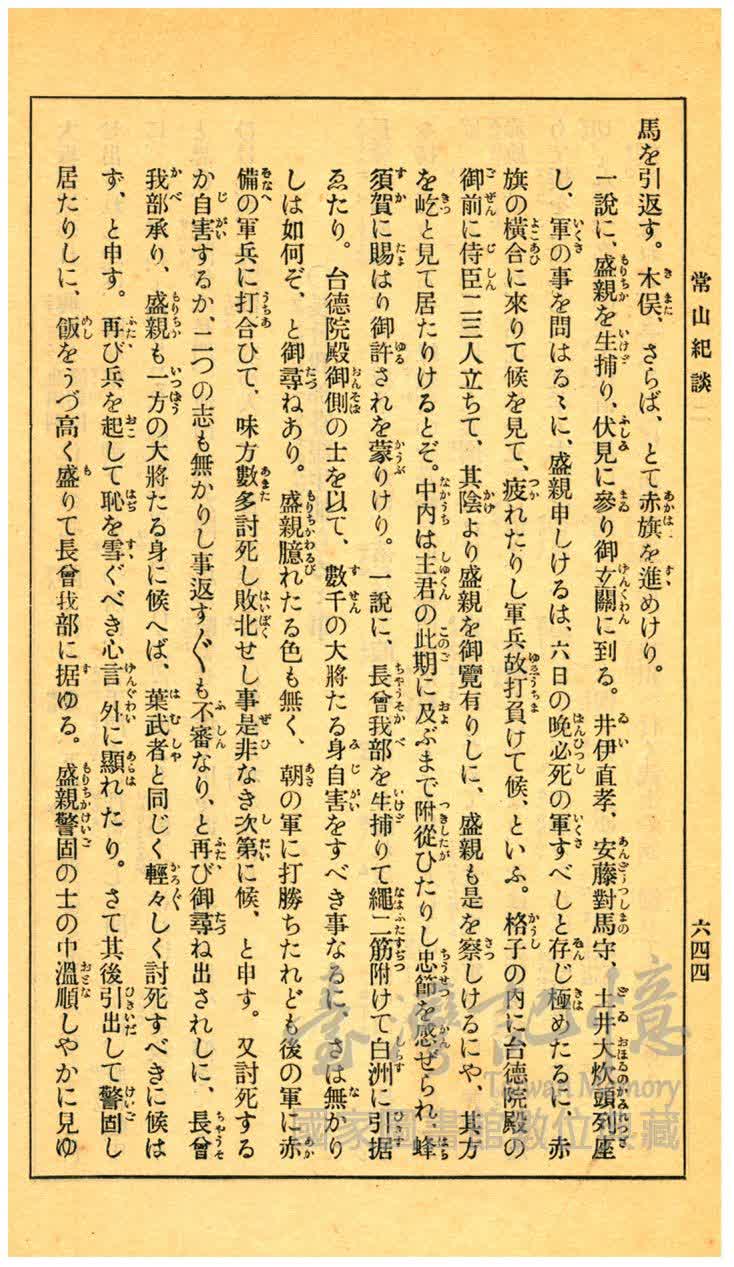 常山紀談 二
六四四
馬を引返す。木俣、さらば、とて赤旗を進めけり。
一說に、盛親を生捕り、伏見に參り御玄關に到る。井伊直孝、安藤對馬守、土井大炊頭列座
し、軍の事を問はるゝに、盛親申しけるは、六日の晩必死の軍すべしと存じ極めたるに、赤
旗の橫合に來りて候を見て、疲れたりし軍兵故打負けて候、といふ。格子の內に台德院殿の
御前に侍臣二三人立ちて、其陰より盛親を御覽有りしに、盛親も是を察しけるにや、其方
を屹と見て居たりけるとぞ。中內は主君の此期に及ぶまで附從ひたりし忠節を感ぜられ、蜂
須賀に賜はり御許されを蒙りけり。一說に、長曾我部を生捕りて繩二筋附けて白洲に引据
ゑたり。台德院殿御側の士を以て、數千の大將たる身自害をすべき事なるに、さは無かり
しは如何ぞ、と御尋ねあり。盛親臆れたる色も無く、朝の軍に打勝ちたれども後の軍に赤
備の軍兵に打合ひて、味方數多討死し敗北せし事是非なき次第に候、と申す。又討死する
か自害するか、二つの志も無かりし事返す〲も不審なり、と再び御尋ね出されしに、長曾
我部承り、盛親も一方の大將たる身に候へば、葉武者と同じく輕々しく討死すべきに候は
ず、と申す。再び兵を起して恥を雪ぐべき心言外に顯れたり。さて其後引出して警固し
居たりしに、飯をうづ高く盛りて長曾我部に据ゆる。盛親警固の士の中溫順しやかに見ゆ
臺灣記憶
Taiwan Memory
國家圖書館數位典藏